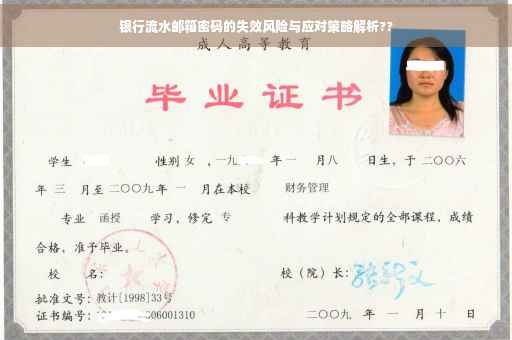 银行流水邮箱密码的失效风险与应对策略解析??
成人高等教育
毕业证书
学生 性别 女 ,一九 年一 月八 日生，于二〇〇六
年 三 月至二〇〇九年 一 月在本校 财务管理
专业 函授 学习，修完 专 科教学计划规定的全部课程，成绩
合格，准予毕业。
校 名： 校（院）长：
批准文号：教计[1998]33号
证书编号： 06001310 二〇〇九 年 一 月 十 日